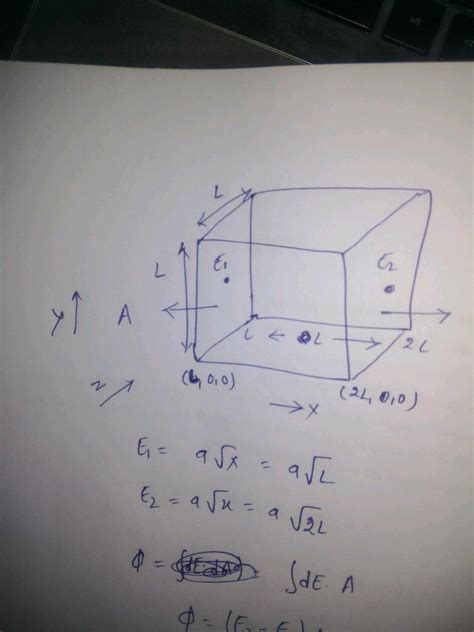 L
L
E₁
E₂
y
A
L
L
2L
z
(L,0,0)
(2L,0,0)
→ x
E₁ = a√x = a√L
E₂ = a√x = a√2L
φ = ∫dE. A
φ = (E₂ - E₁) .